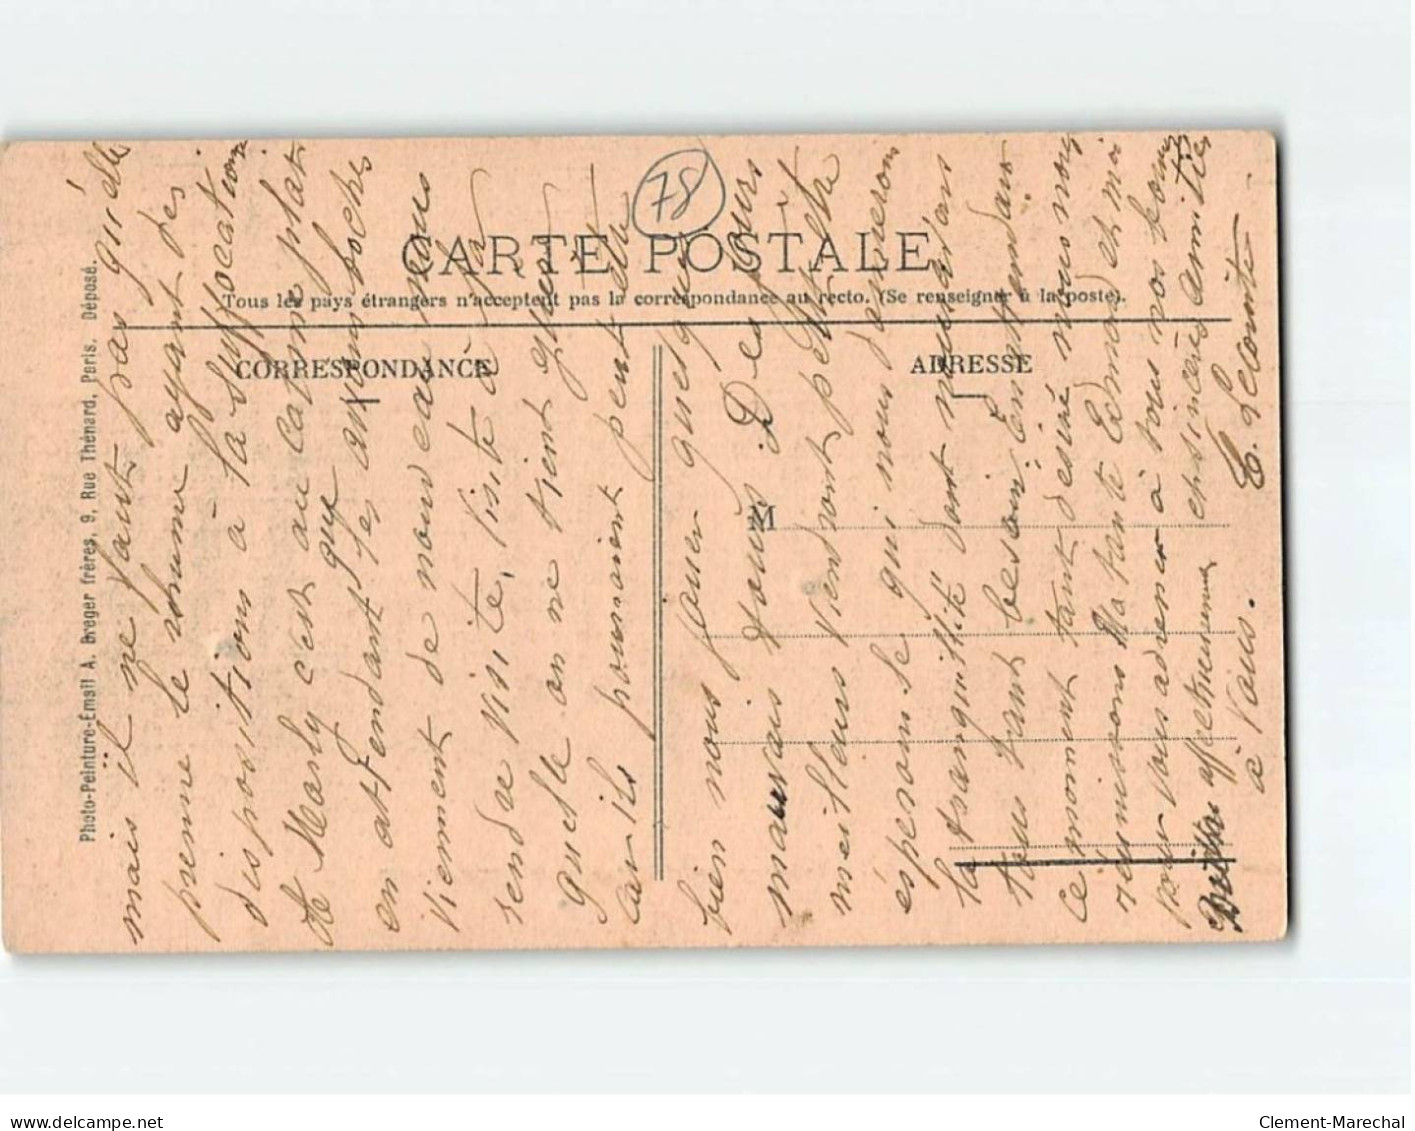 CARTE POSTALE
Tous les pays étrangers n'acceptent pas la correspondance au recto. (Se renseigner à la poste).
CORRESPONDANCE
ADRESSE
M
78
Photo-Peinture-Émail A. Breger frères, 9, Rue Thénard, Paris. Déposé.
mais il ne faut pas qu'elle
prenne le rhume ayant des
dispositions à la suffocation
de Marly c'est au calme plat
en attendant que les avions boches
viennent de nouveau nous
rendre visite, visite à
quelle on ne tient guère
car ils pourraient peut être
bien nous jouer quelques
mauvais tours Des jours
meilleurs viendront peut être
espérons le qui nous donnerons
la tranquillité dont nous avons
tous tant besoin En attendant
ce moment tant désiré nous nous
réunissons Ma tante Edmond et moi
pour vous adresser à tous nos bons
affectueuses et sincères amitiés
à Vous. E. Lecointe
delcampe.net
Clement-Marechal